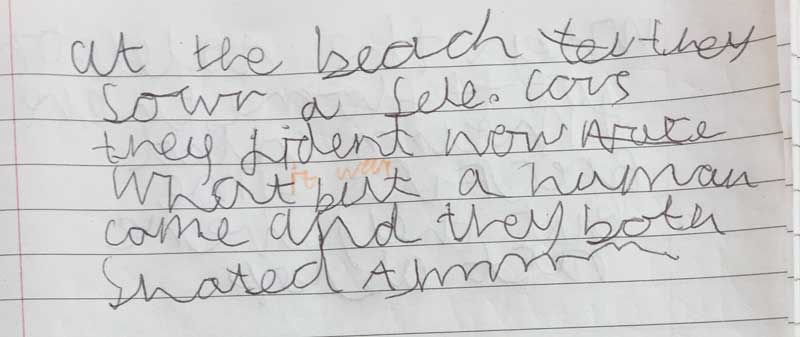 at the beach they
sowr a sele. cors
they dident now
what it was but a human
came and they both
shated Ahhhhhhh